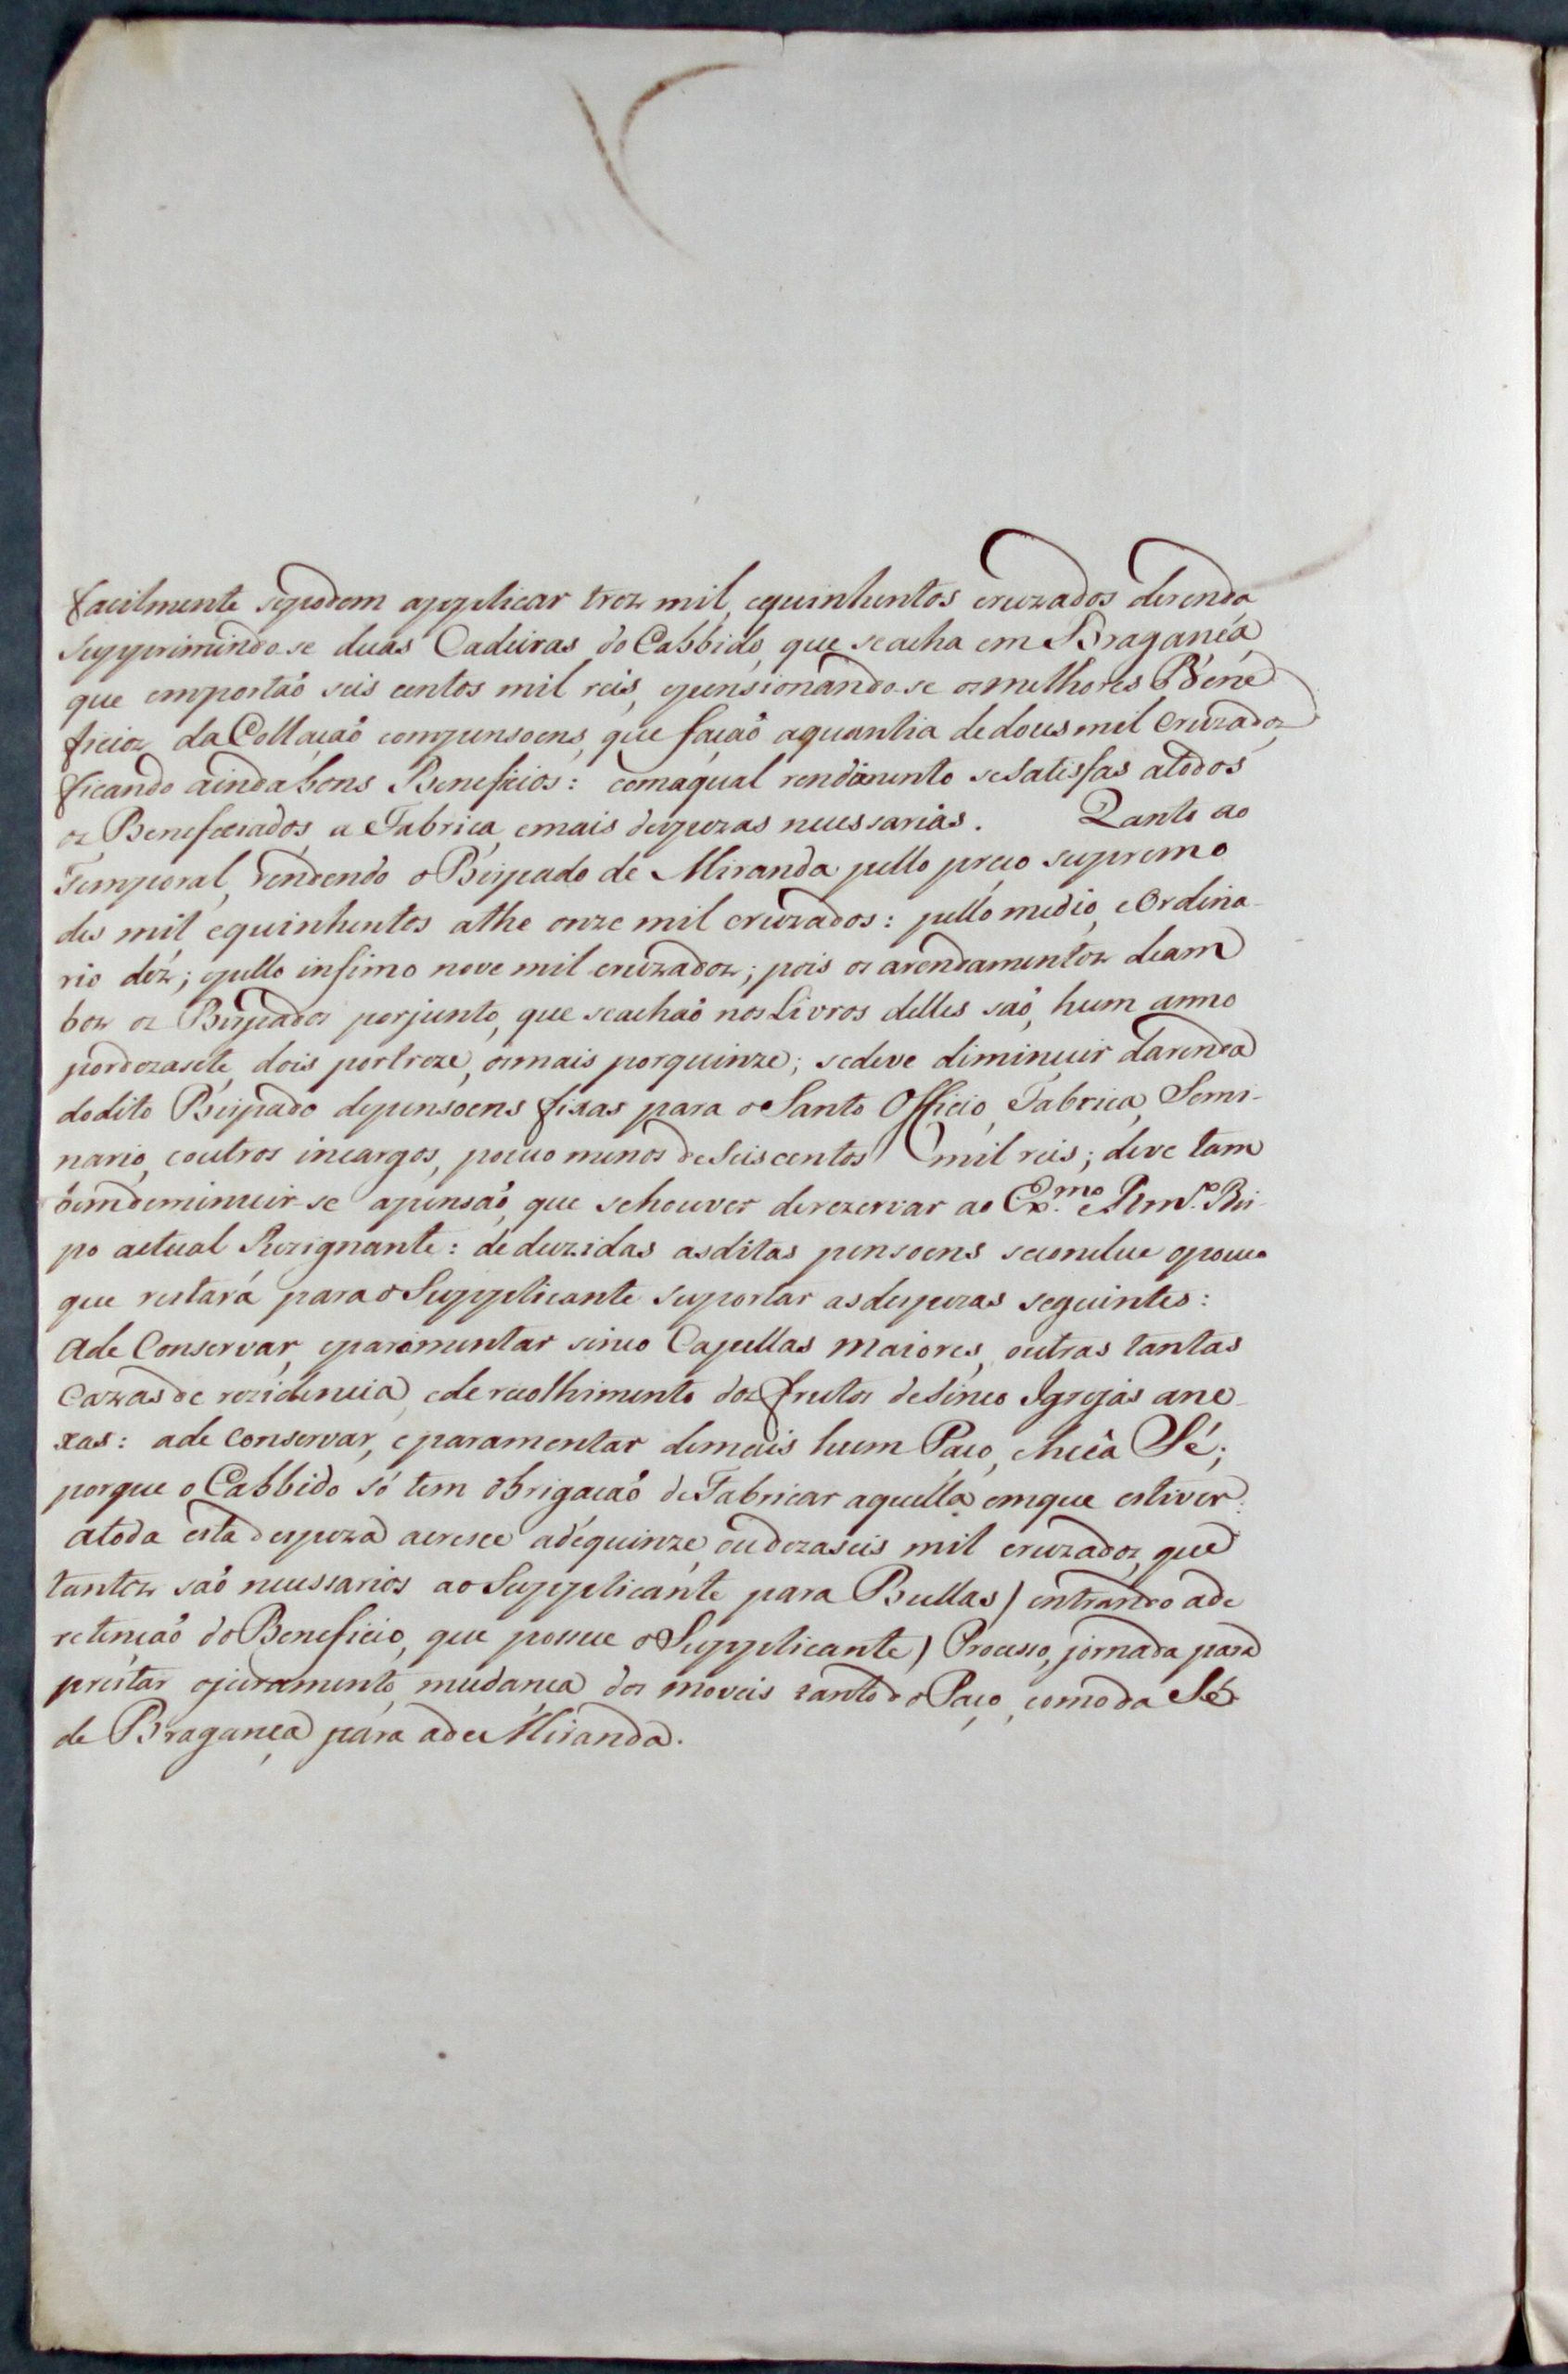 facilmente sepodem applicar trez mil, equinhentos cruzados derenda
supprimindo-se duas Cadeiras do Cabbido, que seacha em Bragança,
que emportaõ seis centos mil reis, epensionando-se osmelhores Bene
ficioz da Collaçaõ compensoens, que façaõ aquantia dedous mil Cruzadoz,
ficando aindabons Beneficios: comaqual rendimento seSatisfas atodos
os Beneficiados, a Fabrica, emais despezas necessarias. Qanto ao
Temporal, rendendo o Bispado de Miranda pello preço supremo
des mil, equinhentos athe onze mil cruzados: pello medio, eOrdina-
rio déz; epello infimo nove mil cruzadoz; pois os arendamentoz deam
boz os Bispados porjunto, que seachaõ nosLivros delles saõ, hum anno
pordezasete, dois portreze, osmais porquinze; sedeve diminuir darenda
dodito Bispado depensoens fixas para oSanto Officio, Fabrica, Semi-
nario, eoutros incargos, pouco menos deSeiscentos mil reis; deve tam
bemdeminuir-se apensaõ, que sehouver derezervar ao Ex.mo eRm.o Bis-
po actual Rezignante: deduzidas asditas pensoens seconclue opouco
que restará para oSupplicante suportar asdespezas seguintes:
Ade Conservar, eparamentar sinco Capellas maiores, outras tantas
Cazas de rezidencia, ede recolhimento dos frutos deSinco Igrejas ane-
xas: ade conservar, eparamentar demais hum Paço, ehuã Sé;
porque o Cabbido só tem obrigaçaõ deFabricar aquella emque estiver:
atoda esta despeza acresce adequinze, oudezaseis mil cruzadoz, que
tantoz saõ necessarios ao Supplicante para Bullas) entrando ade
retençaõ do Beneficio, que possue oSupplicante) Processo, jornada para
prestar ojuramento, mudança dos moveis tanto do Paço, como da Sé
de Bragança para ade Miranda.